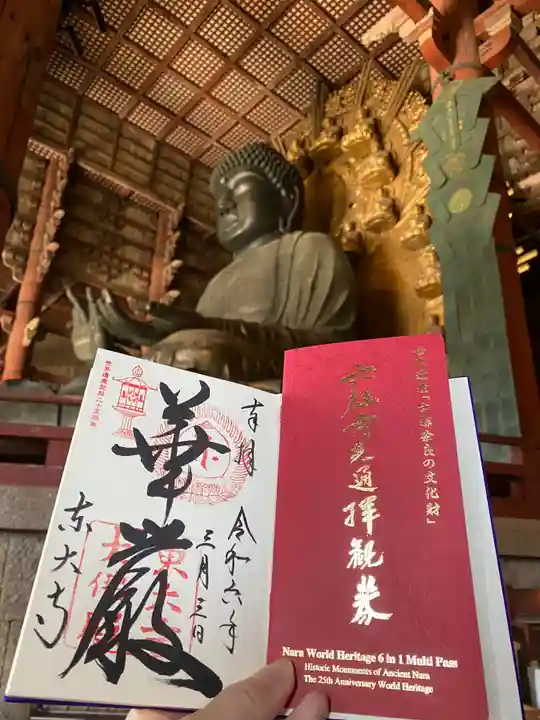 奉拝
令和六年
三月三日
華嚴
東大寺
世界遺産登録二十五周年
世界遺産「古都奈良の文化財」
六社寺共通拝観券
Nara World Heritage 6 in 1 Multi Pass
Historic Monuments of Ancient Nara
The 25th Anniversary World Heritage